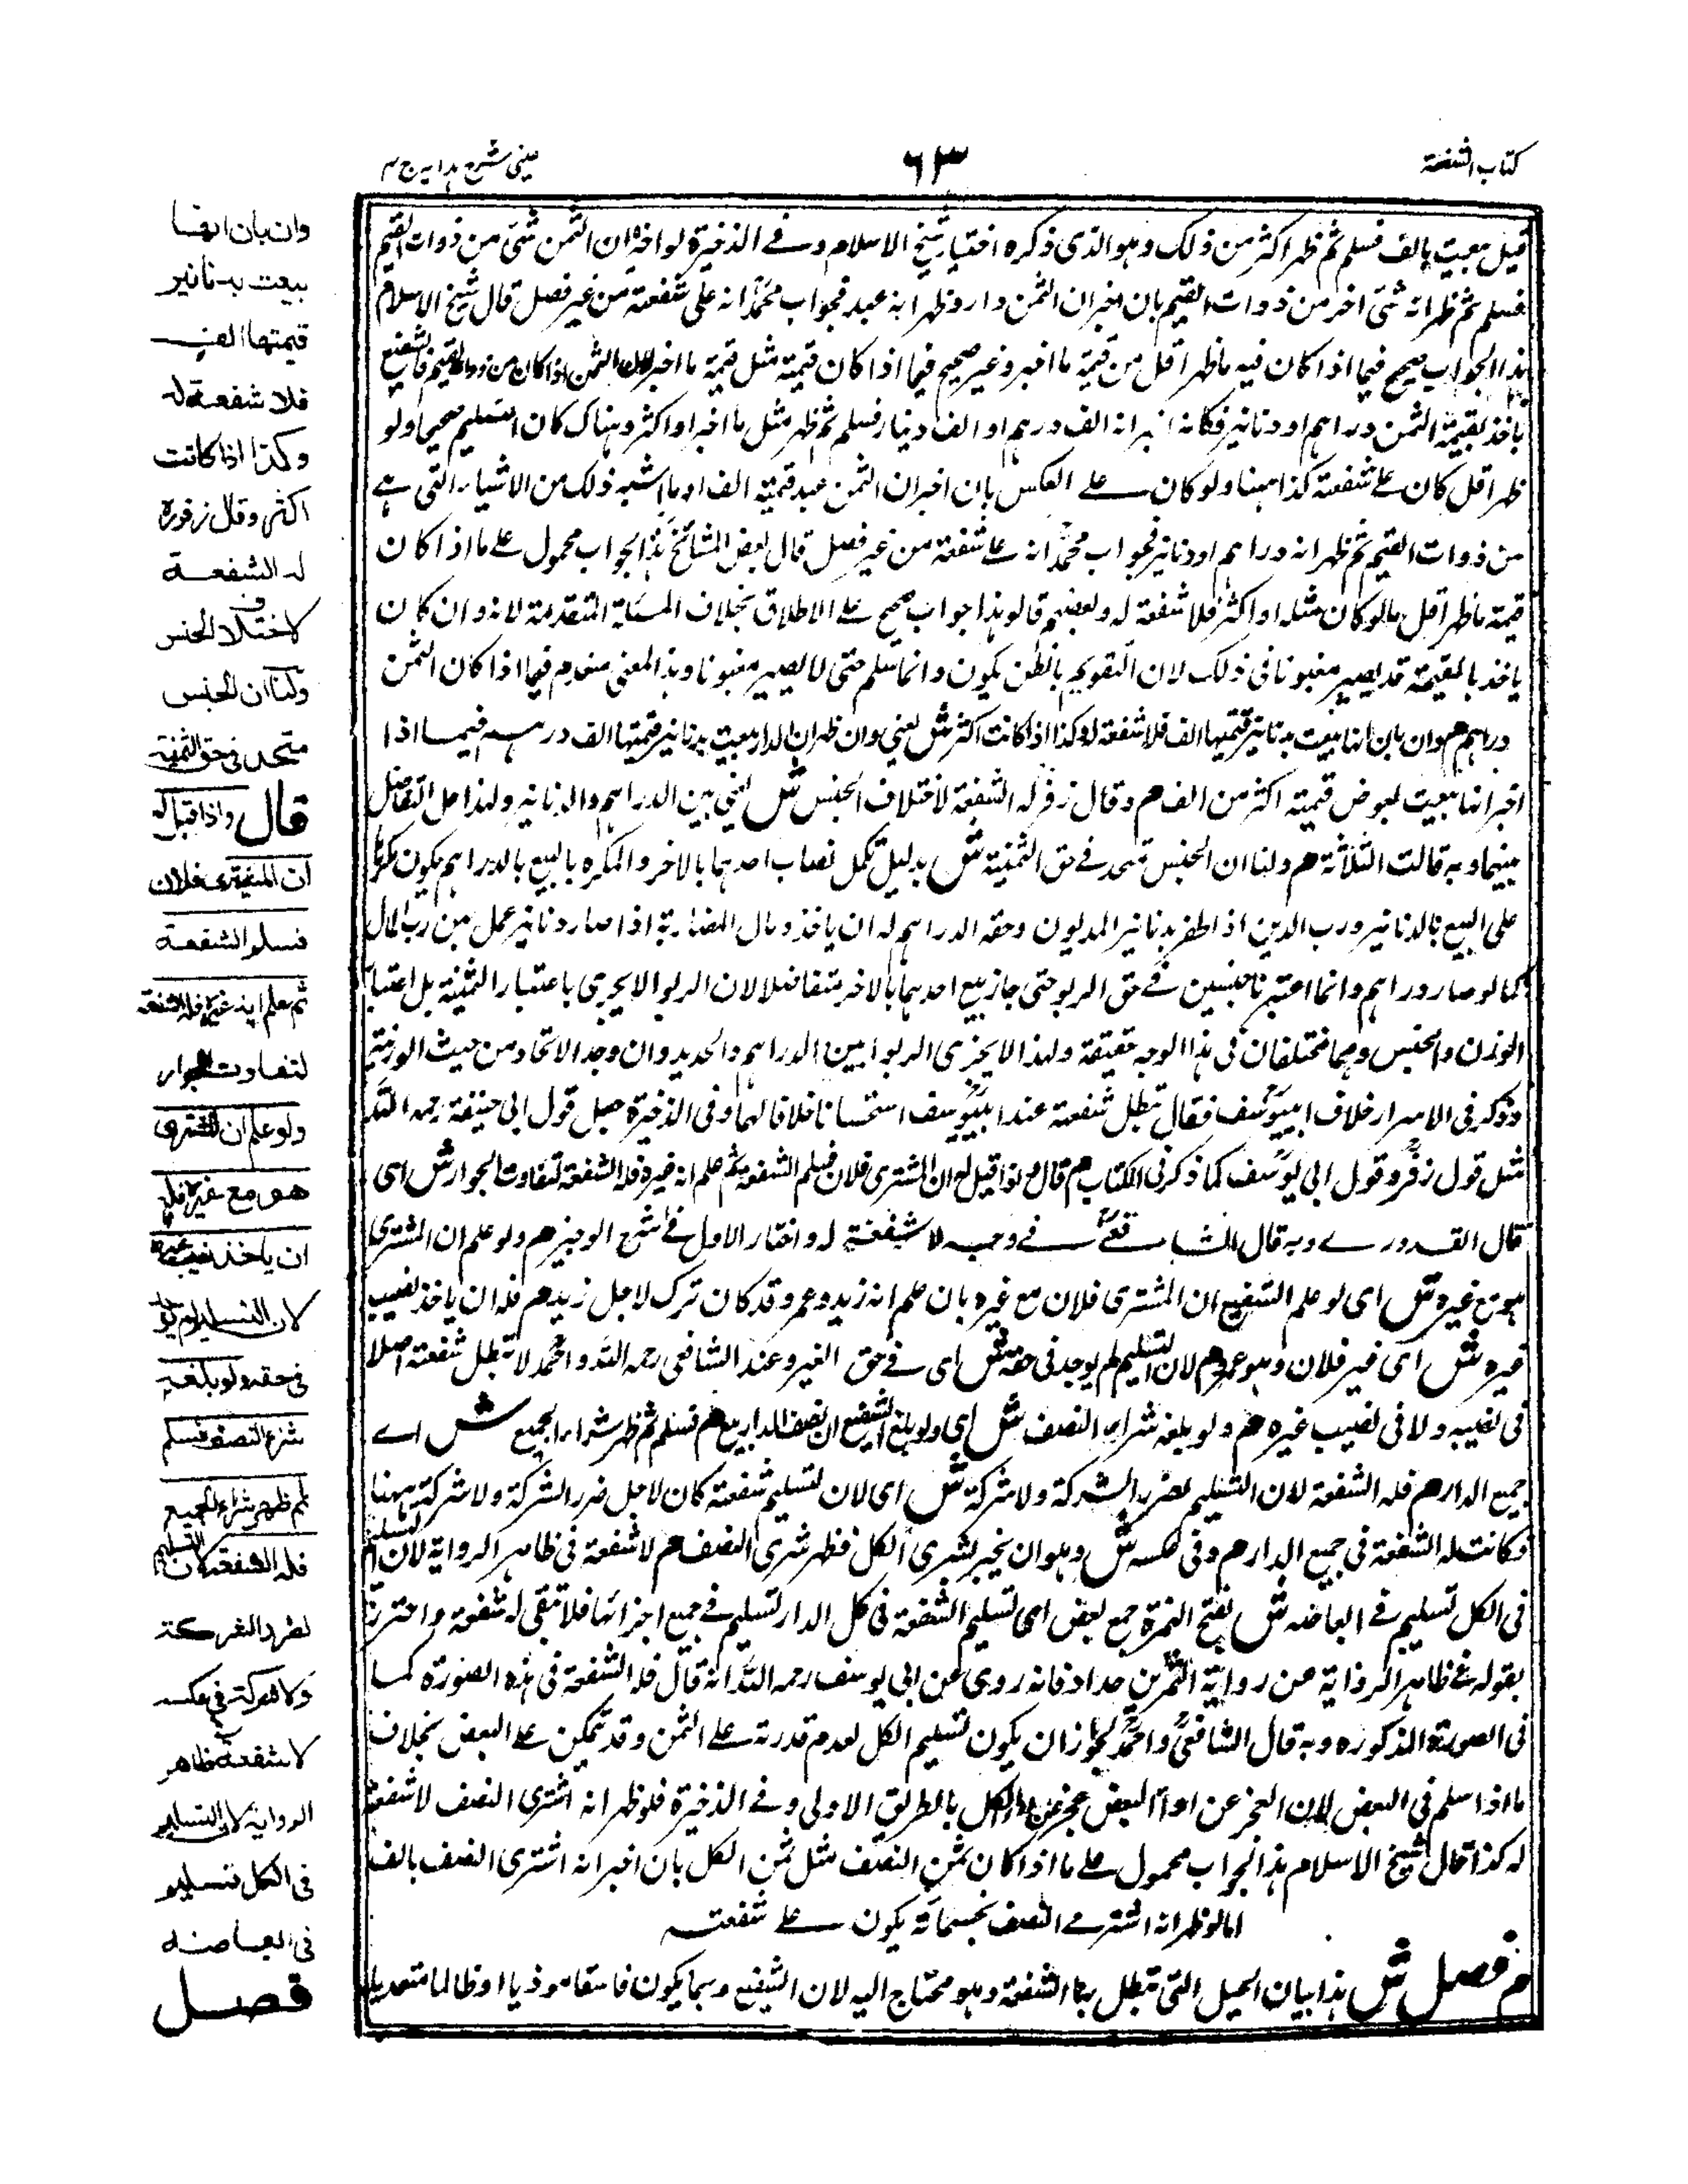 كتاب الشفعة
٦٣
عينى شرح هدايه ج ٣
قيل بيعت بالف فسلم ثم ظهر اكثر من ذلك وهو الذى ذكره اختيار شيخ الاسلام وفے الذخيرة لو اخبر ان الثمن شئ من ذوات القيم
فسلم ثم ظهر انه شئ اخر من ذوات القيم بان اخبر ان الثمن دار وظهر انه عبد فجواب محمدؒ انه على شفعته من غير فصل قال شيخ الاسلام
هذا الجواب صحيح فيما اذا كان قيمة ما ظهر اقل من قيمة ما اخبر وغير صحيح فيما اذا كان قيمته مثل قيمة ما اخبر لان الثمن اذا كان من ذوات القيم فالشفيع
ياخذ بقيمة الثمن دراهم او دنانير فكانه اخبر انه الف درهم او الف دينار فسلم ثم ظهر مثل ما اخبر او اكثر وهناك كان التسليم صحيحا ولو
ظهر اقل كان علے شفعته كذا ههنا ولو كان علے العكس بان اخبر ان الثمن عبد قيمته الف او ما اشبه ذلك من الاشياء التى هے
من ذوات القيم ثم ظهر انه دراهم او دنانير فجواب محمدؒ انه علے شفعته من غير فصل قال بعض المشائخ هذا الجواب محمول علے ما اذا كان
قيمة ما ظهر اقل ما لو كان مثله او اكثر فلا شفعة له وبعضهم قالو هذا جواب صحيح علے الاطلاق بخلاف المسئلة المتقدمة لانه وان كان
ياخذ بالقيمة قد يصير مغبونا فى ذلك لان التقويم بالظن يكون وانما سلم حتى لا يصير مغبونا وهذا المعنى منعدم فيما اذا كان الثمن
دراهم م وان بان انها بيعت بدنانير قيمتها الف فلا شفعة له وكذا اذا كانت اكثر ش يعنى وان ظهر ان الدار بيعت بدنانير قيمتها الف درهم فيما اذا
اخبر انها بيعت بعوض قيمته اكثر من الف م وقال زفر له الشفعة لاختلاف الجنس ش يعنى بين الدراهم والدنانير ولهذا حل التفاضل
بينهما وبه قالت الثلاثة م ولنا ان الجنس متحد فے حق الثمنية ش بدليل تكمل نصاب احدهما بالاخر والمكره بالبيع بالدراهم يكون مكرها
على البيع بالدنانير ورب الدين اذا ظفر بدنانير المديون وحقه الدراهم له ان ياخذ ومال المضاربة اذا صار دنانير عمل من رب المال
كما لو صار دراهم وانما اعتبر نا جنسين فے حق الربو حتى جاز بيع احدهما بالاخر متفاضلا لان الربو لا يجرى باعتبار الثمنية بل اعتبار
الوزن والجنس وهما مختلفان فى هذا الوجه حقيقة ولهذا لا يجزى الربوا بين الدراهم والحديد وان وجد الاتحاد من حيث الوزنية
وذكر فى الاسرار خلاف ابى يوسف فقال تبطل شفعته عند ابى يوسف استحسانا خلافا لهما وفى الذخيرة جعل قول ابى حنيفة رحمه الله
مثل قول زفرؒ وقول ابى يوسف كما ذكر فى الكتاب م قال واذا قيل له ان المشترى فلان فسلم الشفعة ثم علم انه غيره فله الشفعة لتفاوت الجوار ش اى
قال القدورے وبه قال الشافعىؒ فے وجه لا شفعة له واختار الاول فے شرح الوجيز م ولو علم ان المشترى
هو مع غيره ش اى لو علم الشفيع ان المشترى فلان مع غيره بان علم انه زيد وعمرو وقد كان ترك لاجل زيد م فله ان ياخذ نصيب
غيره ش اى غير فلان وهو عمرو م لان التسليم لم يوجد فى حقه ش اى فے حق الغير وعند الشافعى رحمه الله واحمد لا تبطل شفعته اصلا
فى نصيبه ولا فى نصيب غيره م ولو بلغه شراء النصف ش اى ولو بلغ الشفيع ان نصف الدار بيع م فسلم ثم ظهر شراء الجميع ش اے
جميع الدار م فله الشفعة لان التسليم لضرر الشركة ولا شركة ش اى لان تسليم شفعته كان لاجل ضرر الشركة ولا شركة ههنا
وكانت له الشفعة فى جميع الدار م وفى عكسه ش وهو ان يخبر بشرى الكل فظهر شرى النصف م لا شفعة فى ظاهر الرواية لان التسليم
فى الكل تسليم فے ابعاضه ش بفتح الهمزة جمع بعض اى تسليم الشفعة فى كل الدار تسليم فے جميع اجزائها فلا تبقى له شفعة واحترز
بقوله فے ظاهر الرواية عن رواية حداد فانه روى عن ابى يوسف رحمه الله انه قال فله الشفعة فى هذه الصورة كما
فى الصورة المذكوره وبه قال الشافعىؒ واحمدؒ لجواز ان يكون تسليم الكل لعدم قدرته علے الثمن وقد تمكن علے البعض بخلاف
ما اذا سلم فى البعض لان العجز عن اداء البعض عجز عن الكل بالطريق الاولى وفے الذخيرة فلو ظهر انه اشترى النصف لا شفعة
له كذا قال شيخ الاسلام هذا الجواب محمول علے ما اذا كان ثمن النصف مثل ثمن الكل بان اخبر انه اشترى النصف بالف
اما لو ظهر انه اشترے النصف بخمسمائة يكون علے شفعته
م فصل ش هذا بيان الحيل التى تبطل بها الشفعة وهو محتاج اليه لان الشفيع ربما يكون فاسقا موذيا او ظالما متعديا
وان بان انها
بيعت بدنانير
قيمتها الف
فلا شفعة له
وكذا اذا كانت
اكثر وقال زفرؒ
له الشفعة
لاختلاف الجنس
ولنا ان الجنس
متحد فى حق الثمنية
قال واذا قيل له
ان المشترى فلان
فسلم الشفعة
ثم علم انه غيره فله الشفعة
لتفاوت الجوار
ولو علم ان المشترى
هو مع غيره فله
ان ياخذ نصيب غيره
لان التسليم لم يوجد
فى حقه ولو بلغه
شراء النصف فسلم
ثم ظهر شراء الجميع
فله الشفعة لان التسليم
لضرر الشركة
ولا شركة وفى عكسه
لا شفعة فى ظاهر
الرواية لان التسليم
فى الكل تسليم
فى ابعاضه
فصل